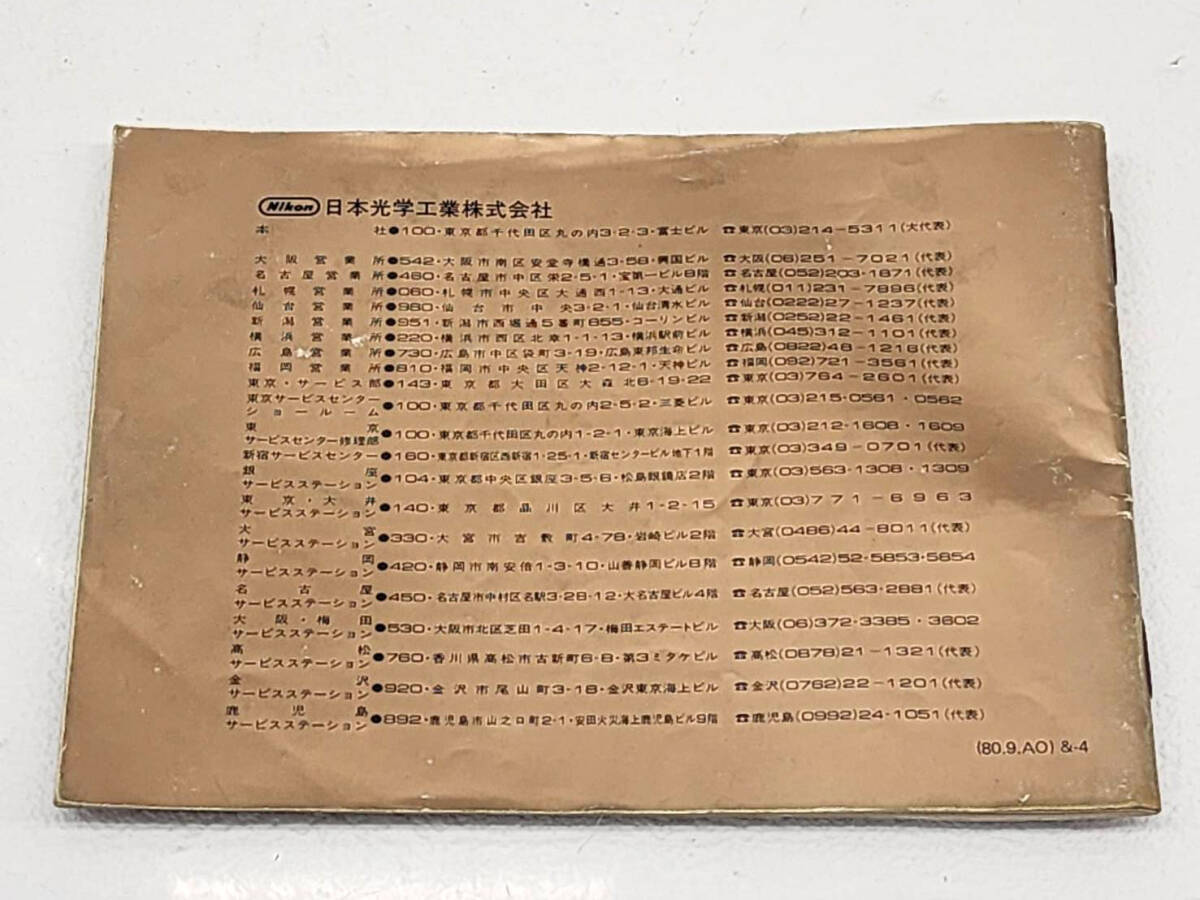 Nikon 日本光学工業株式会社
本社●100・東京都千代田区丸の内3-2-3・富士ビル ☎東京(03)214-5311(大代表)
大阪営業所●542・大阪市南区安堂寺橋通3-58・興国ビル ☎大阪(06)251-7021(代表)
名古屋営業所●460・名古屋市中区栄2-5-1・宝第一ビル8階 ☎名古屋(052)203-1871(代表)
札幌営業所●060・札幌市中央区大通西1-13・大通ビル ☎札幌(011)231-7896(代表)
仙台営業所●980・仙台市中央3-2-1・仙台清水ビル ☎仙台(0222)27-1237(代表)
新潟営業所●951・新潟市西堀通5番町855・コーリンビル ☎新潟(0252)22-1461(代表)
横浜営業所●220・横浜市西区北幸1-1-13・横浜駅前ビル ☎横浜(045)312-1101(代表)
広島営業所●730・広島市中区袋町3-19・広島東邦生命ビル ☎広島(0822)48-1216(代表)
福岡営業所●810・福岡市中央区天神2-12-1・天神ビル ☎福岡(092)721-3561(代表)
東京・サービス部●143・東京都大田区大森北6-19-22 ☎東京(03)764-2601(代表)
東京サービスセンター
ショールーム●100・東京都千代田区丸の内2-5-2・三菱ビル ☎東京(03)215-0561・0562
東京
サービスセンター修理部●100・東京都千代田区丸の内1-2-1・東京海上ビル ☎東京(03)212-1608・1609
新宿サービスセンター●160・東京都新宿区西新宿1-25-1・新宿センタービル地下1階 ☎東京(03)349-0701(代表)
銀座
サービスステーション●104・東京都中央区銀座3-5-6・松島眼鏡店2階 ☎東京(03)563-1308・1309
東京・大井
サービスステーション●140・東京都品川区大井1-2-15 ☎東京(03)771-6963
大宮
サービスステーション●330・大宮市吉敷町4-78・岩崎ビル2階 ☎大宮(0486)44-8011(代表)
静岡
サービスステーション●420・静岡市南安倍1-3-10・山善静岡ビル8階 ☎静岡(0542)52-5853・5854
名古屋
サービスステーション●450・名古屋市中村区名駅3-28-12・大名古屋ビル4階 ☎名古屋(052)563-2881(代表)
大阪・梅田
サービスステーション●530・大阪市北区芝田1-4-17・梅田エステートビル ☎大阪(06)372-3385・3602
高松
サービスステーション●760・香川県高松市古新町6-8・第3ミタケビル ☎高松(0878)21-1321(代表)
金沢
サービスステーション●920・金沢市尾山町3-18・金沢東京海上ビル ☎金沢(0762)22-1201(代表)
鹿児島
サービスステーション●892・鹿児島市山之口町2-1・安田火災海上鹿児島ビル9階 ☎鹿児島(0992)24-1051(代表)
(80.9.AO) &-4